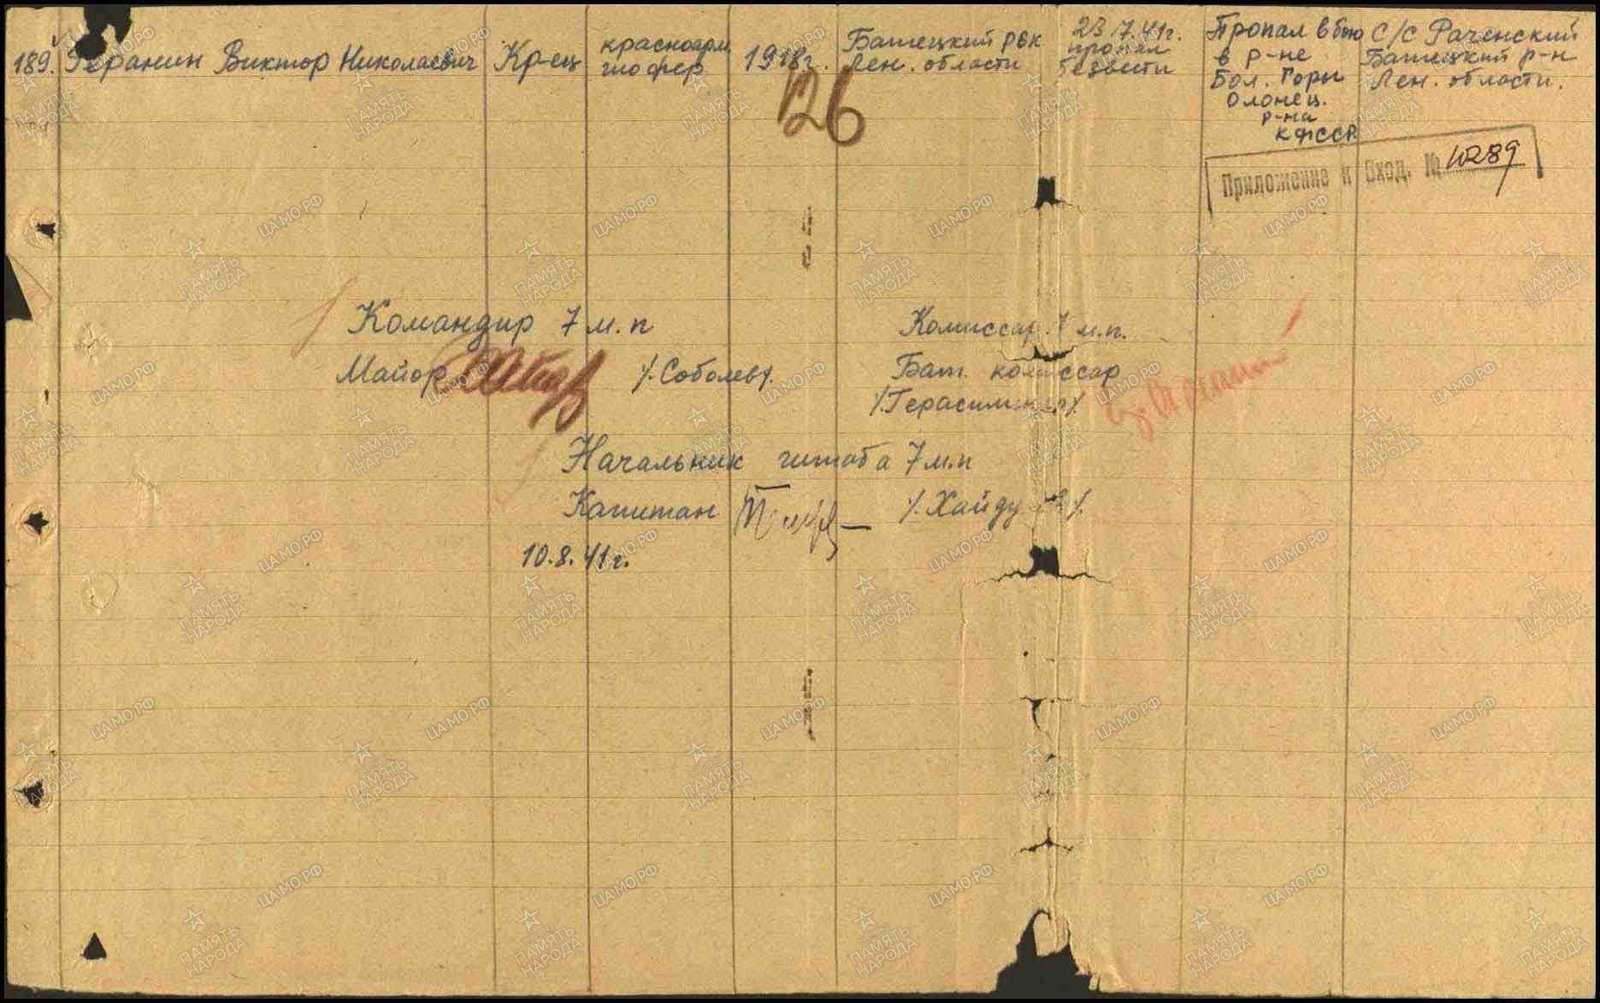 189. Геранин Виктор Николаевич Кр-ец красноарм. шофер 1918г. Батецкий рвк Лен. области 23.7.41г. пропал безвести Пропал в бою в р-не Бол. Горы Олонец. р-на КФССР С/С Раченский Батецкий р-н Лен. области.
126
Приложение к Вход. № 10289
Командир 7 м.п Комиссар 7 м.п.
Майор /.Соболев/. Бат. комиссар
/Герасименко/.
Начальник штаба 7 м.п
Капитан /.Хайду
10.8.41г.
ЦАМО.РФ
ПАМЯТЬ
НАРОДА